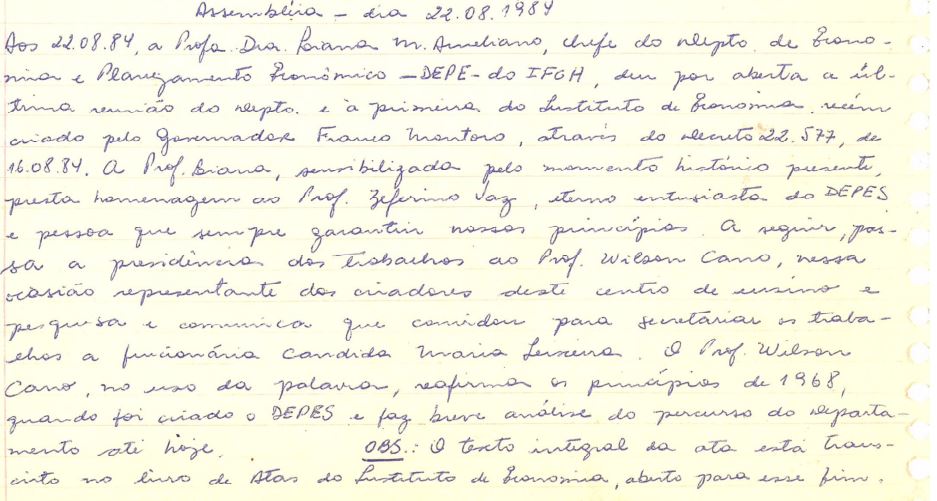 Assembléia - dia 22.08.1984
Aos 22.08.84, a Profa. Dra. Liana M. Aureliano, chefe do depto. de Econo-
mia e Planejamento Econômico - DEPE - do IFCH, deu por aberta a úl-
tima reunião do depto. e à primeira do Instituto de Economia recém
criado pelo Governador Franco Montoro, através do decreto 22.577, de
16.08.84. A Prof. Liana, sensibilizada pelo momento histório presente,
presta homenagem ao Prof. Zeferino Vaz, eterno entusiasta do DEPES
e pessoa que sempre garantiu nossos princípios. A seguir, pas-
sa a presidência dos trabalhos ao Prof. Wilson Cano, nessa
ocasião representante dos criadores deste centro de ensino e
pesquisa e comunica que convidou para secretariar os traba-
lhos a funcionária Candida Maria Teixeira. O Prof. Wilson
Cano, no uso da palavra, reafirma os princípios de 1968,
quando foi criado o DEPES e faz breve análise do percurso do departa-
mento até hoje. OBS.: O texto integral da ata está trans-
crito no livro de Atas do Instituto de Economia, aberto para esse fim.